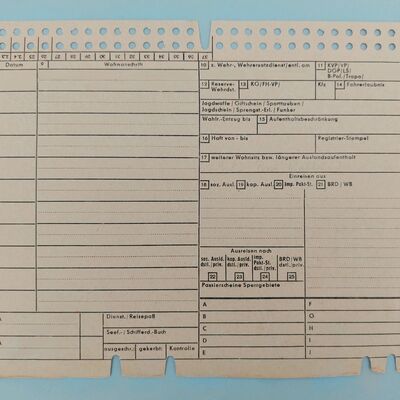 37
Datum 9 Wohnanschrift
10 z. Wehr-, Wehrersatzdienst/entl. am
11 KVP/VP/
DGP(LS)
B-Pol./Trapo/
12 Reserve-
Wehrdst.
13 KG/FH-VP/
Kls
14 Fahrerlaubnis
Jagdwaffe / Giftschein / Sporttauben /
Jagdschein / Sprengst.-Erl. / Funker
Wahlr.-Entzug bis 15 Aufenthaltsbeschränkung
16 Haft von - bis Registrier-Stempel
17 weiterer Wohnsitz bzw. längerer Auslandsaufenthalt
Einreisen aus
18 soz. Ausl. 19 kap. Ausl. 20 imp. Pakt-St. 21 BRD / WB
Ausreisen nach
soz. Ausld.
dstl./priv.
kap. Ausld.
dstl./priv.
imp.
Pakt-St.
dstl./priv.
BRD / WB
dstl./priv.
22 23 24 25
Passierscheine Sperrgebiete
A F
B G
C H
D I
E J
A
A
Dienst-/Reisepaß
Seef.- / Schifferd.-Buch
ausgeschr./ gekerbt: Kontrolle